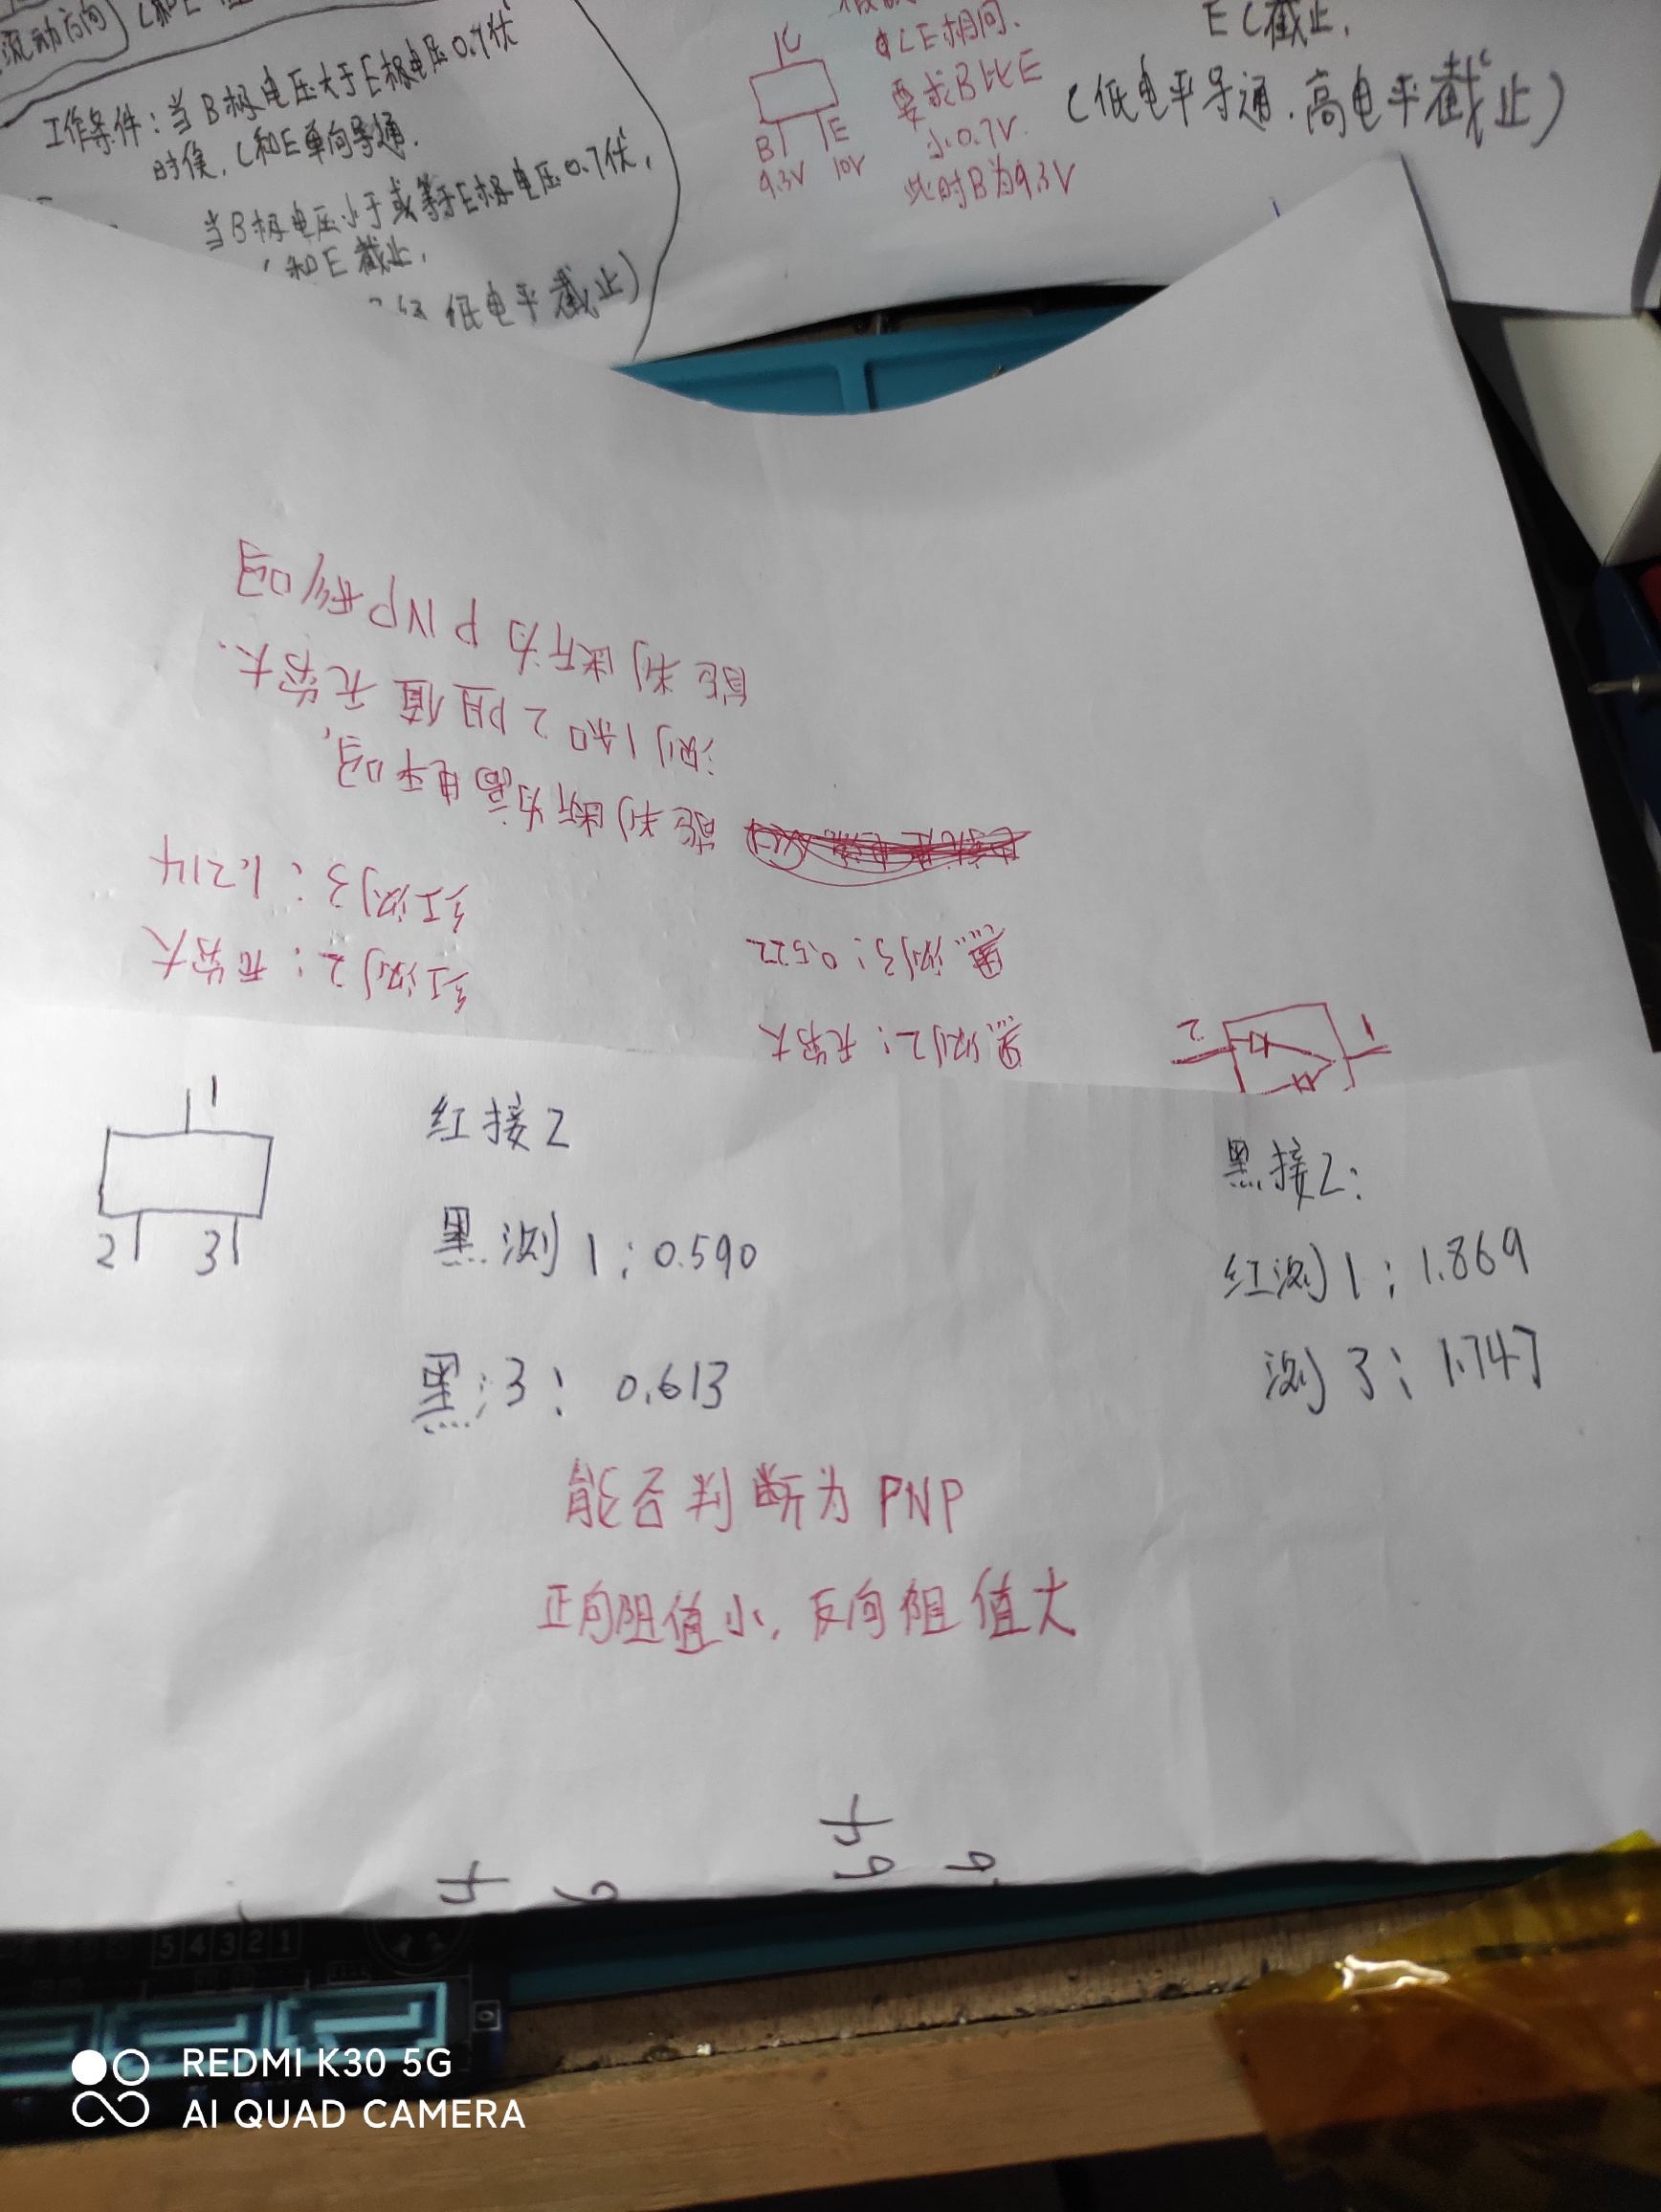 流动方向
工作条件：当B极电压大于E极电压0.7伏
时候，C和E单向导通．
当B极电压小于或等于E极电压0.7伏，
和E截止．
低电平截止）
C
B E
9.3V 10V
CE相同．
要求B比E
小0.7V
此时B为9.3V
EC截止．
（低电平导通．高电平截止）
能判断为PNP型吗
测1和2阻值无穷大．
能判断为高电平吗，
红测3：1.214
红测2：无穷大
黑测3：0.522
黑测2：无穷大
2 1
1
2 3
红接2
黑测1：0.590
黑：3：0.613
黑接2：
红测1：1.869
测3：1.747
能否判断为PNP
正向阻值小．反向阻值大
5 4 3 2 1
REDMI K30 5G
AI QUAD CAMERA